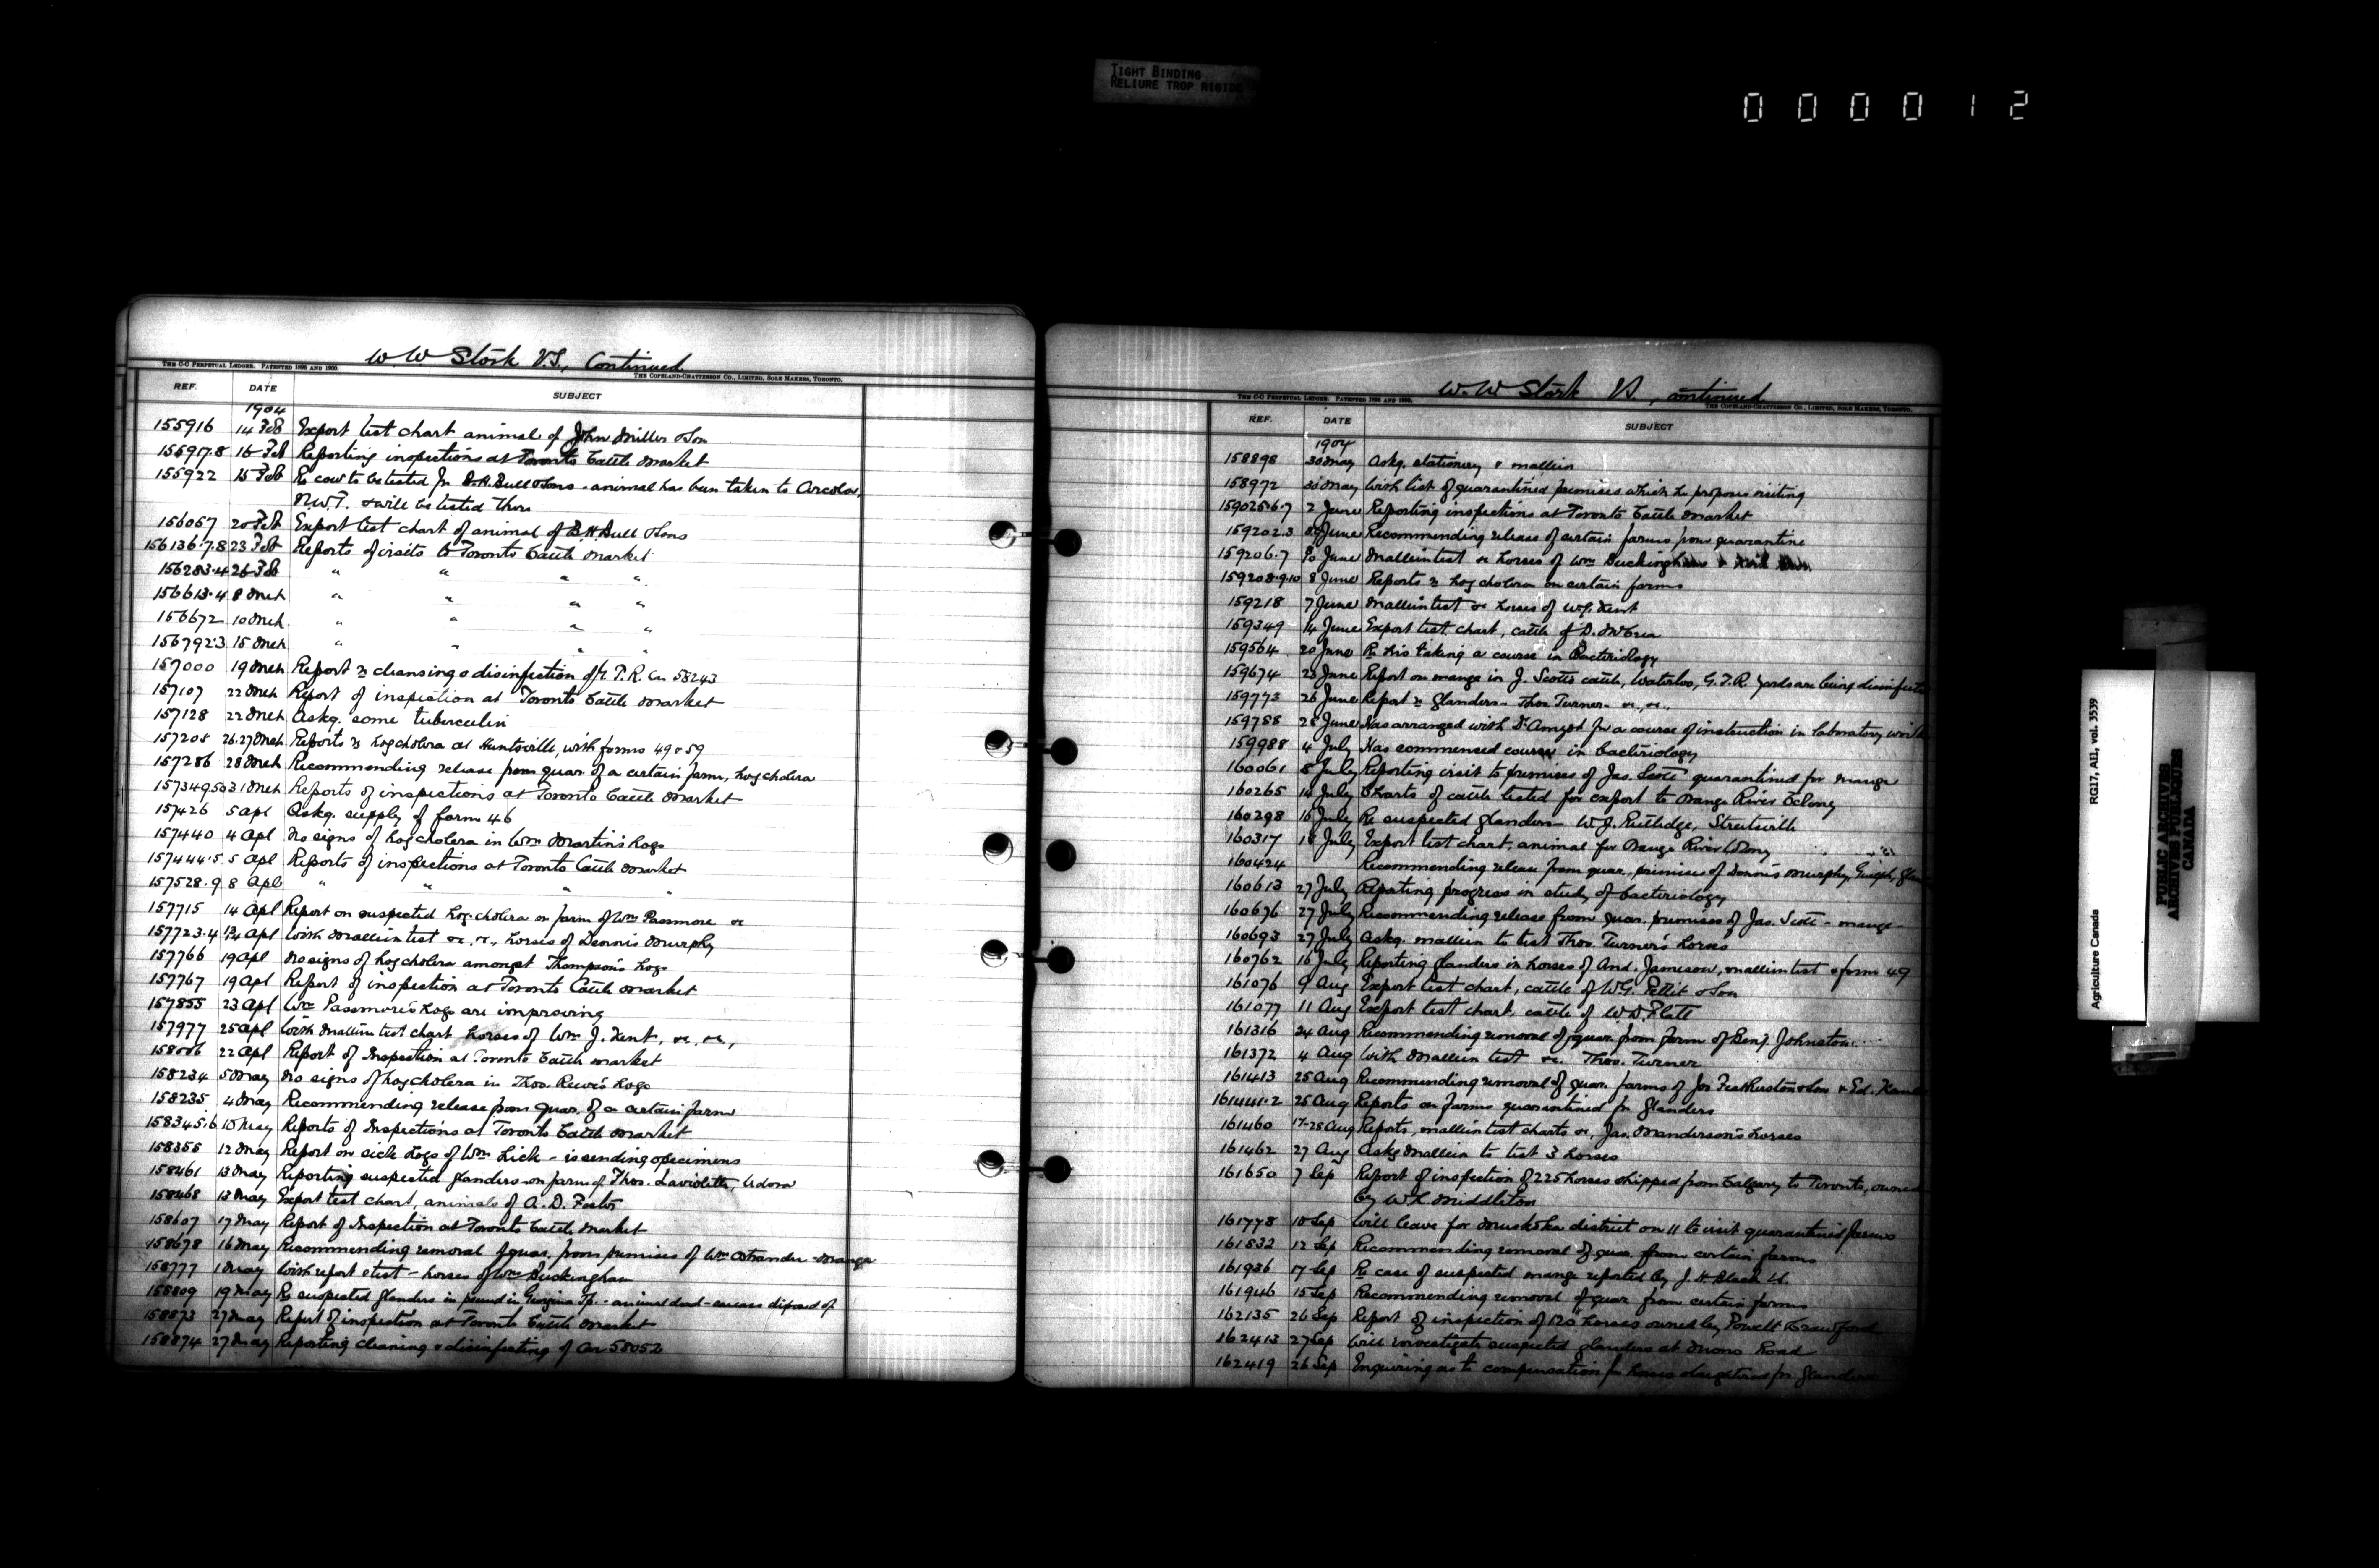 TIGHT BINDING
RELIURE TROP RIGIDE
000012
W. W Stork V.S., Continued
THE C-C PERPETUAL LEDGER. PATENTED 1896 AND 1900.
THE COPELAND-CHATTERSON CO., LIMITED, SOLE MAKERS, TORONTO.
REF. DATE SUBJECT
1904
155916 14 Feb Export test chart animal of John Miller & Son
155917.8 16 Feb Reporting inspections at Toronto Cattle Market
155922 15 Feb Re cow to be tested for B.H. Bull & Sons - animal has been taken to Arcola,
N.W.T. & will be tested there
156057 20 Feb Export test chart of animal of B.H. Bull & Sons
156136.7.8 23 Feb Reports of visits to Toronto Cattle Market
156283.4 26 Feb " " " "
156613.4 8 Mch " " " "
156672 10 Mch " " " "
156792.3 15 Mch " " " "
157000 19 Mch Report re cleansing & disinfection of G.T.R. Car 58243
157107 22 Mch Report of inspection at Toronto Cattle Market
157128 22 Mch Askg. some tuberculin
157208 26.27 Mch Reports re hog cholera at Huntsville, with forms 49 & 59
157286 28 Mch Recommending release from quar. of a certain farm, hog cholera
157349.50 31 Mch Reports of inspections at Toronto Cattle Market
157426 5 Apl Askg. supply of form 46
157440 4 Apl No signs of hog cholera in Wm Martin's hogs
157444.5 5 Apl Reports of inspections at Toronto Cattle Market
157528.9 8 Apl " " " "
157715 14 Apl Report on suspected hog cholera on farm of Wm Passmore &c
157723.4 13/14 Apl With Mallein test &c. &c., horses of Dennis Murphy
157766 19 Apl No signs of hog cholera amongst Thompson's hogs
157767 19 Apl Report of inspection at Toronto Cattle Market
157855 23 Apl Wm Passmore's hogs are improving
157977 25 Apl With Mallein test chart horses of Wm J. Kent, &c, &c,
158006 22 Apl Report of Inspection at Toronto Cattle Market
158234 5 May No signs of hog cholera in Thos. Rewe's hogs
158235 4 May Recommending release from quar. of a certain farm
158345.6 10 May Reports of Inspections at Toronto Cattle Market
158355 12 May Report on sick hogs of Wm Lick - is sending specimens
158461 13 May Reporting suspected glanders on farm of Thos. Laviolette, Udora
158468 13 May Export test chart, animals of A. D. Foster
158607 17 May Report of Inspection at Toronto Cattle Market
158678 16 May Recommending removal of quar. from premises of Wm Ostrander - Mange
158777 1 May With report & test - horses of Wm Buckingham
158809 19 May Re suspected glanders in pound in Georgina Tp. - animal dead - carcass disposed of
158873 27 May Report of inspection at Toronto Cattle Market
158874 27 May Reporting cleaning & disinfecting of Car 58052
W. W Stork VS, Continued
THE C-C PERPETUAL LEDGER. PATENTED 1896 AND 1900.
THE COPELAND-CHATTERSON CO., LIMITED, SOLE MAKERS, TORONTO.
REF. DATE SUBJECT
1904
158898 30 May Askg. stationery & mallein
158972 30 May With list of quarantined premises which he proposes visiting
159025.6.7 2 June Reporting inspections at Toronto Cattle Market
159202.3 June Recommending release of certain farms from quarantine
159206.7 June Mallein test &c horses of Wm Buckingham
159208.9.10 8 June Reports re hog cholera on certain farms
159218 7 June Mallein test &c horses of W.J. Kent
159349 14 June Export test chart, cattle of D. McCrea
159564 20 June Re his taking a course in Bacteriology
159674 23 June Report on mange in J. Scott's cattle, Waterloo, G.T.R. yards are being disinfected
159773 26 June Report re Glanders - Thos Turner - &c., &c.,
159788 28 June Has arranged with Dr Amyot for a course of instruction in laboratory work
159988 4 July Has commenced course in bacteriology
160061 8 July Reporting visit to premises of Jas. Scott quarantined for mange
160265 14 July Charts of cattle tested for export to Orange River Colony
160298 16 July Re suspected glanders - W. J. Rutledge, Streetsville
160317 18 July Export test chart, animal for Orange River Colony
160424 Recommending release from quar. premises of Dennis Murphy, Guelph,
160613 27 July Reporting progress in study of bacteriology
160676 27 July Recommending release from quar. premises of Jas. Scott - mange -
160693 27 July Askg. mallein to test Thos. Turner's horses
160762 16 July Reporting glanders in horses of And. Jameson, mallein test & form 49
161076 9 Aug Export test chart, cattle of W.G. Pettit & Son
161077 11 Aug Export test chart, cattle of W. D. Flatt
161316 24 Aug Recommending removal of quar. from farm of Benj. Johnston
161372 4 Aug With Mallein test &c. Thos. Turner
161413 25 Aug Recommending removal of quar. farms of Jos Featherston & Son & Ed.
161441.2 25 Aug Reports on farms quarantined for glanders
161460 17-28 Aug Reports, mallein test charts &c, Jas. Manderson's horses
161462 27 Aug Askg Mallein to test 3 horses
161650 7 Sep Report of inspection of 225 horses shipped from Calgary to Toronto, owned
by W. L. Middleton
161778 10 Sep Will leave for Muskoka district on 11 to visit quarantined farms
161832 12 Sep Recommending removal of quar. from certain farms
161936 17 Sep Re case of suspected mange reported by J. H. Black
161946 15 Sep Recommending removal of quar from certain farms
162135 26 Sep Report of inspection of 120 horses owned by Powell & Crawford
162413 27 Sep Will investigate suspected glanders at Mono Road
162419 26 Sep Enquiring as to compensation for horses slaughtered for glanders
Agriculture Canada RG17, AII, vol. 3539
PUBLIC ARCHIVES
ARCHIVES PUBLIQUES
CANADA